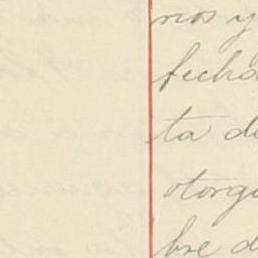 nos y
fecha
ta d
otorg
bre d